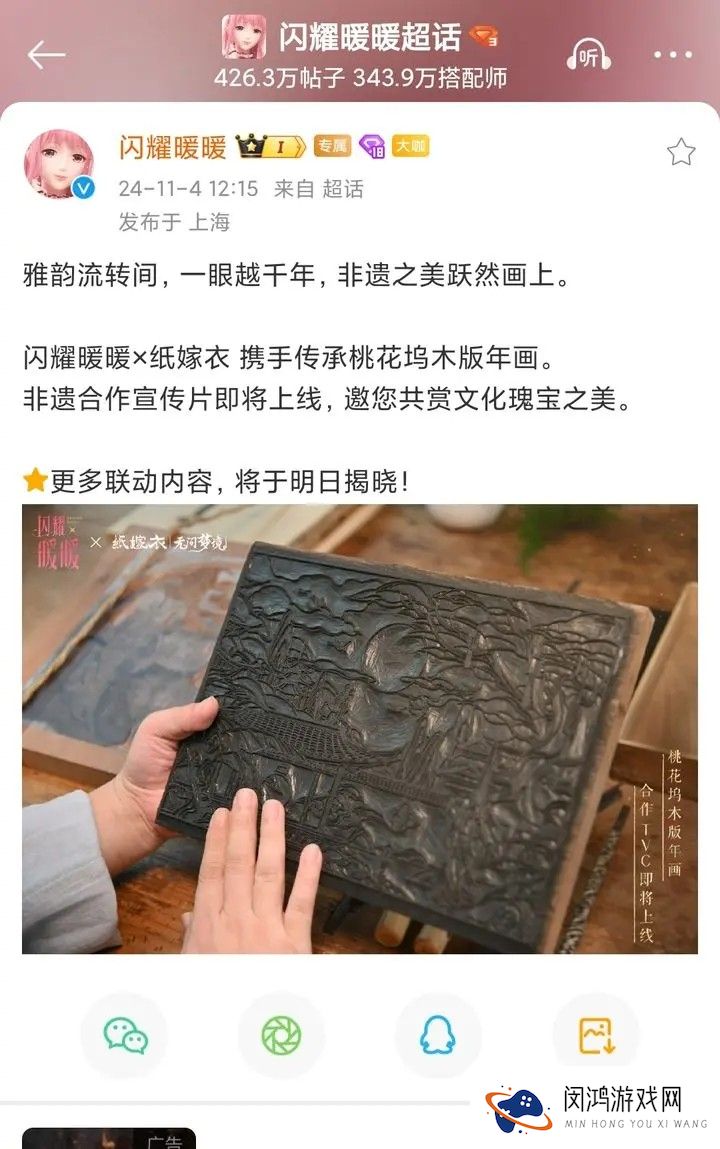 闪耀暖暖超话
3
听
426.3万帖子 343.9万搭配师
闪耀暖暖 I 专属 18 大咖
24-11-4 12:15 来自 超话
发布于 上海
雅韵流转间，一眼越千年，非遗之美跃然画上。
闪耀暖暖×纸嫁衣 携手传承桃花坞木版年画。
非遗合作宣传片即将上线，邀您共赏文化瑰宝之美。
更多联动内容，将于明日揭晓！
闪耀暖暖 × 纸嫁衣 无间梦境
桃花坞木版年画
合作TVC即将上线
闵鸿游戏网
MIN HONG YOU XI WANG
广告